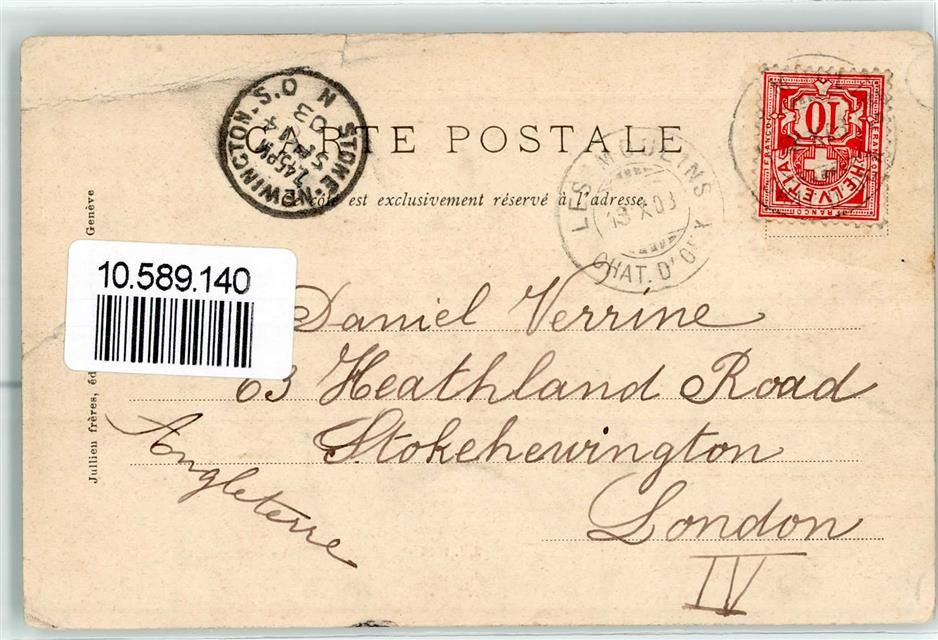 CARTE POSTALE
Ce côté est exclusivement réservé à l'adresse.
STOKE-NEWINGTON.S.O N
7.45PM
03
LES MOULINS
13 X 03
CHAT. D'OEX
10
HELVETIA
FRANCO
10.589.140
Jullien frères, éd
Genève
Daniel Verrine
63 Heathland Road
Stokehewington
London
IV
Angleterre